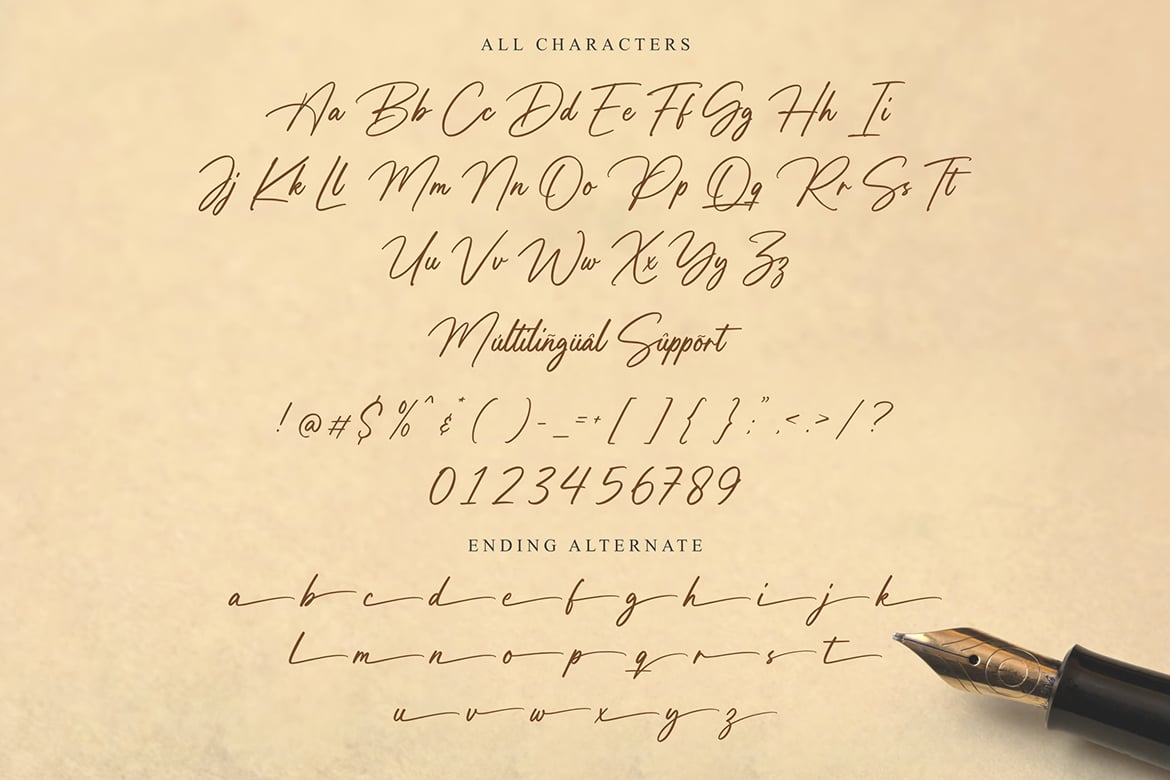 ALL CHARACTERS
Aa Bb Cc Dd Ee Ff Gg Hh Ii
Jj Kk Ll Mm Nn Oo Pp Qq Rr Ss Tt
Uu Vv Ww Xx Yy Zz
Múltiliñgüâl Sûppõrt
! @ # $ % ^ & * ( ) - _ = + [ ] { } : ; " , < . > / ?
0 1 2 3 4 5 6 7 8 9
ENDING ALTERNATE
a b c d e f g h i j k
l m n o p q r s t
u v w x y z